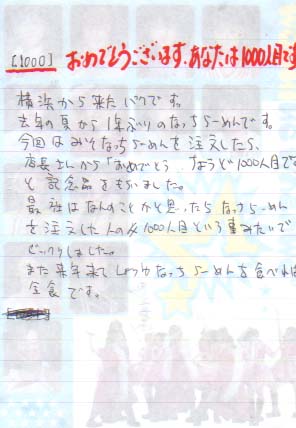 [1000] おめでとうございます、あなたは1000人目です
横浜から来たバクです。
去年の夏から1年ぶりのなっちらーめんです。
今回はみそなっちらーめんを注文したら、
店長さんから「おめでとう ちょうど1000人目です
と記念品をもらいました。
最初はなんのことかと思ったらなっちらーめん
を注文した人の1000人目という事みたいで
ビックリしました。
また来年来てしょうゆなっちらーめんを食べれば
全食です。